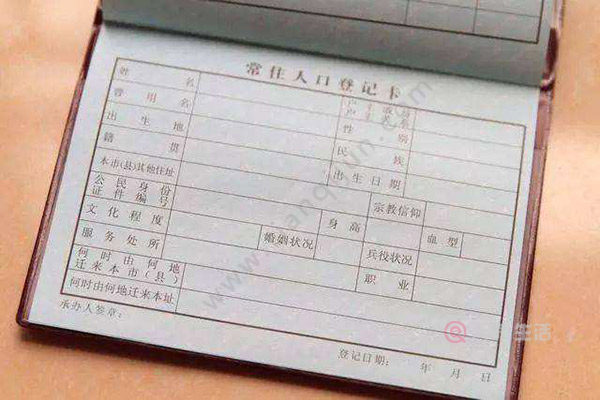 常住人口登记卡
姓名
户主或与户主关系
曾用名
性别
出生地
民族
籍贯
出生日期
本市(县)其他住址
宗教信仰
公民身份证件编号
身高
血型
文化程度
婚姻状况
兵役状况
服务处所
职业
何时由何地迁来本市(县)
何时由何地迁来本址
承办人签章:
登记日期: 年 月 日
生活